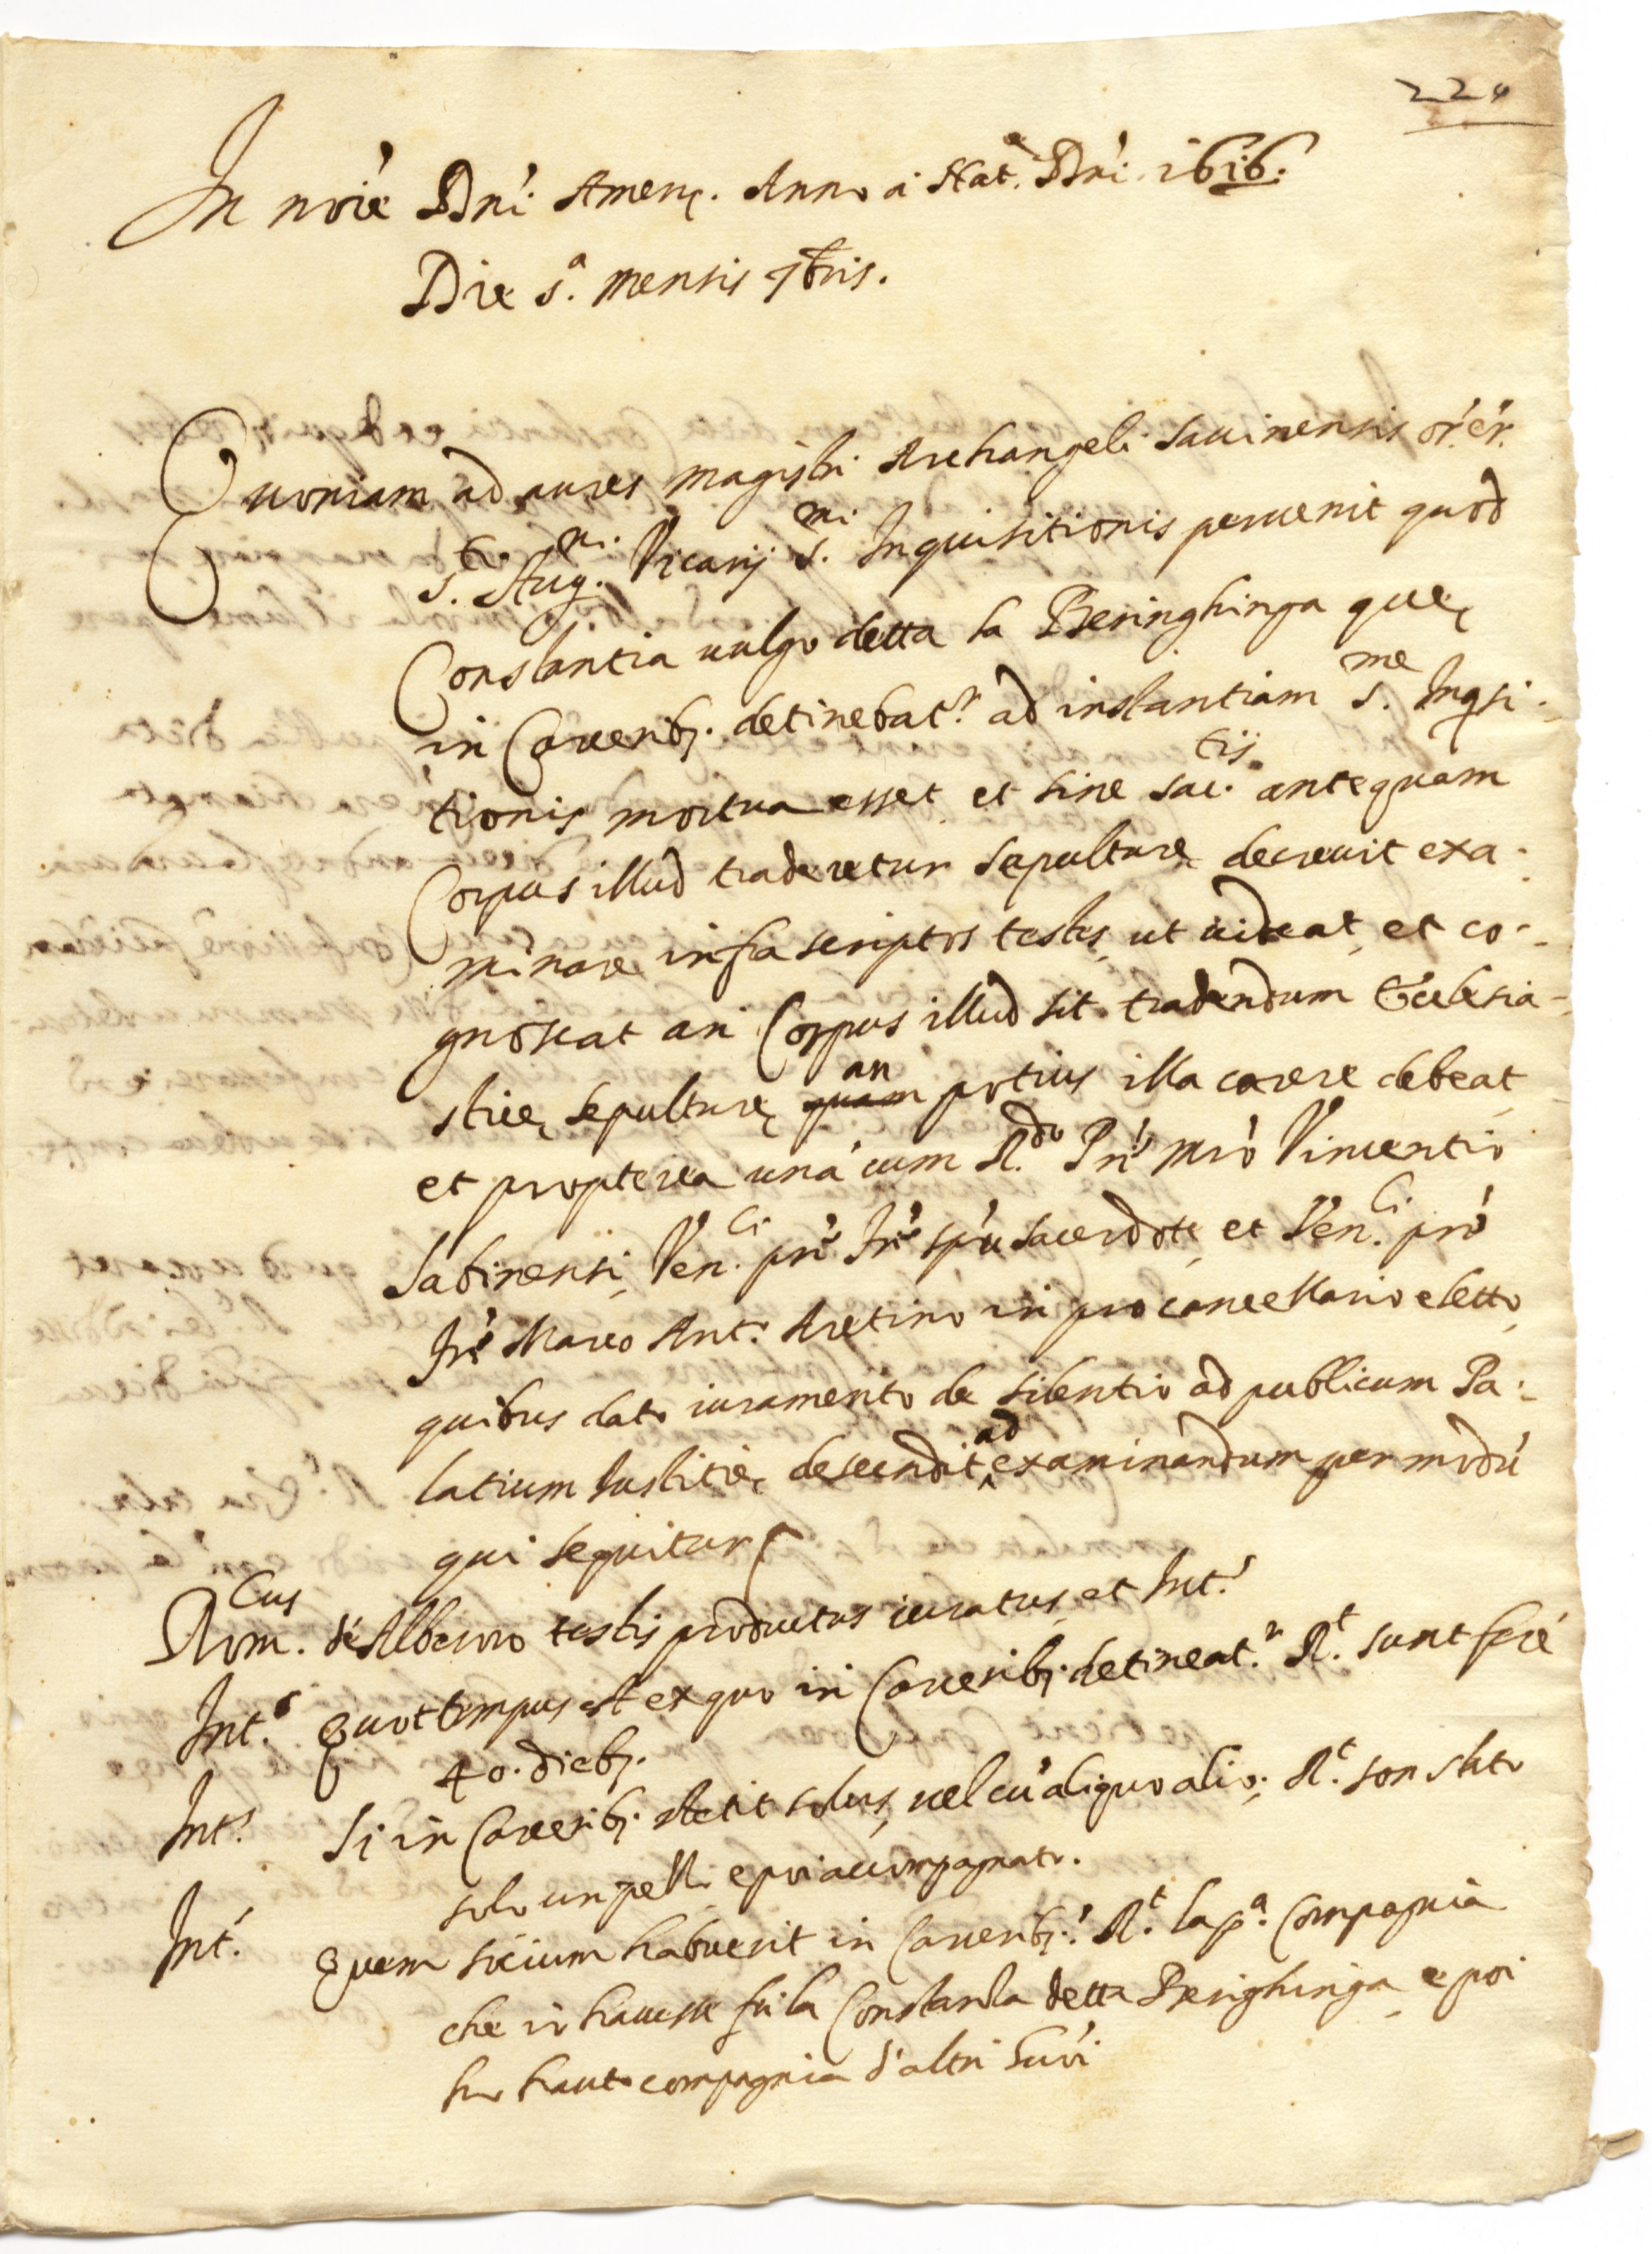 224
In no͞ie Dn͞i Amen. Anno a Nat.e Dn͞i 1616.
Die s.a mensis 7bris.
Quoniam ad aures magistri Archangeli Sauinensis or. er.
s.ti Aug.ni Vicarij S.mi Inquisitionis peruenit quod
Constantia uulgo detta la Beringhinga quę
in Carcerib; detinebat.r ad instantiam S.me Inqsi-
tionis mortua esset et sine sac.tis antequam
Corpus illud traderetur sepulturę decreuit exa-
minare infrascriptos testes, ut uideat, et co-
gnoscat an Corpus illud sit tradendum Ecclesia-
sticę sepulturę quam an potius illa carere debeat
et propterea una cum R.do Pre Mro Vincentio
Sabinensi, Ven.li pre Fre spu sacerdote, et Ven.li pro
Fre Marco Ant.o Aretino in pro cancellario eletto,
quibus dato iuramento de silentio ad publicum Pa-
latium Iustitię descendit ad examinandum per modu͞
qui sequitur
Dom.cus de Alberoro testis productus iuratus, et Int.s
Int.s Quot tempus est ex quo in Carcerib; detineat.r R.t sunt ferè
40. dieb;.
Int.s Si in Carcerib; stetit solus, uel cu͞ aliquo alio; R.t son stato
solo un pezzo e poi accompagnato.
Int.s Quem socium habuerit in Carcerib;: R.t la p.a Compagnia
che io hauesse fu la Constanza detta Beringhinga, e poi
ho hauto compagnia d'altri